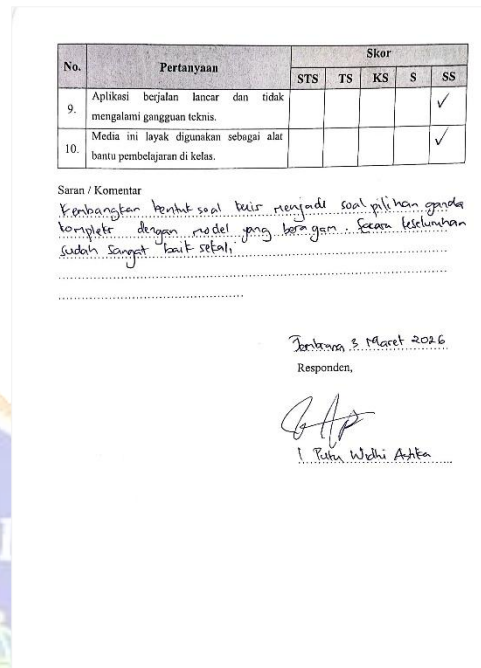 No. Pertanyaan Skor
STS TS KS S SS
9. Aplikasi berjalan lancar dan tidak
mengalami gangguan teknis. ✓
10. Media ini layak digunakan sebagai alat
bantu pembelajaran di kelas. ✓
Saran / Komentar
Kembangkan bentuk soal kuis menjadi soal pilihan ganda
kompleks dengan model yang beragam. Secara keseluruhan
sudah sangat baik sekali
Jembrana, 3 Maret 2026
Responden,
I Putu Widhi Astika